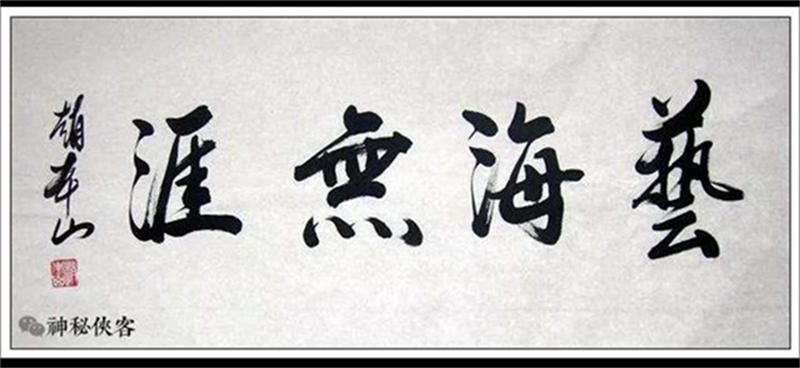 藝海無涯
趙本山
神秘侠客